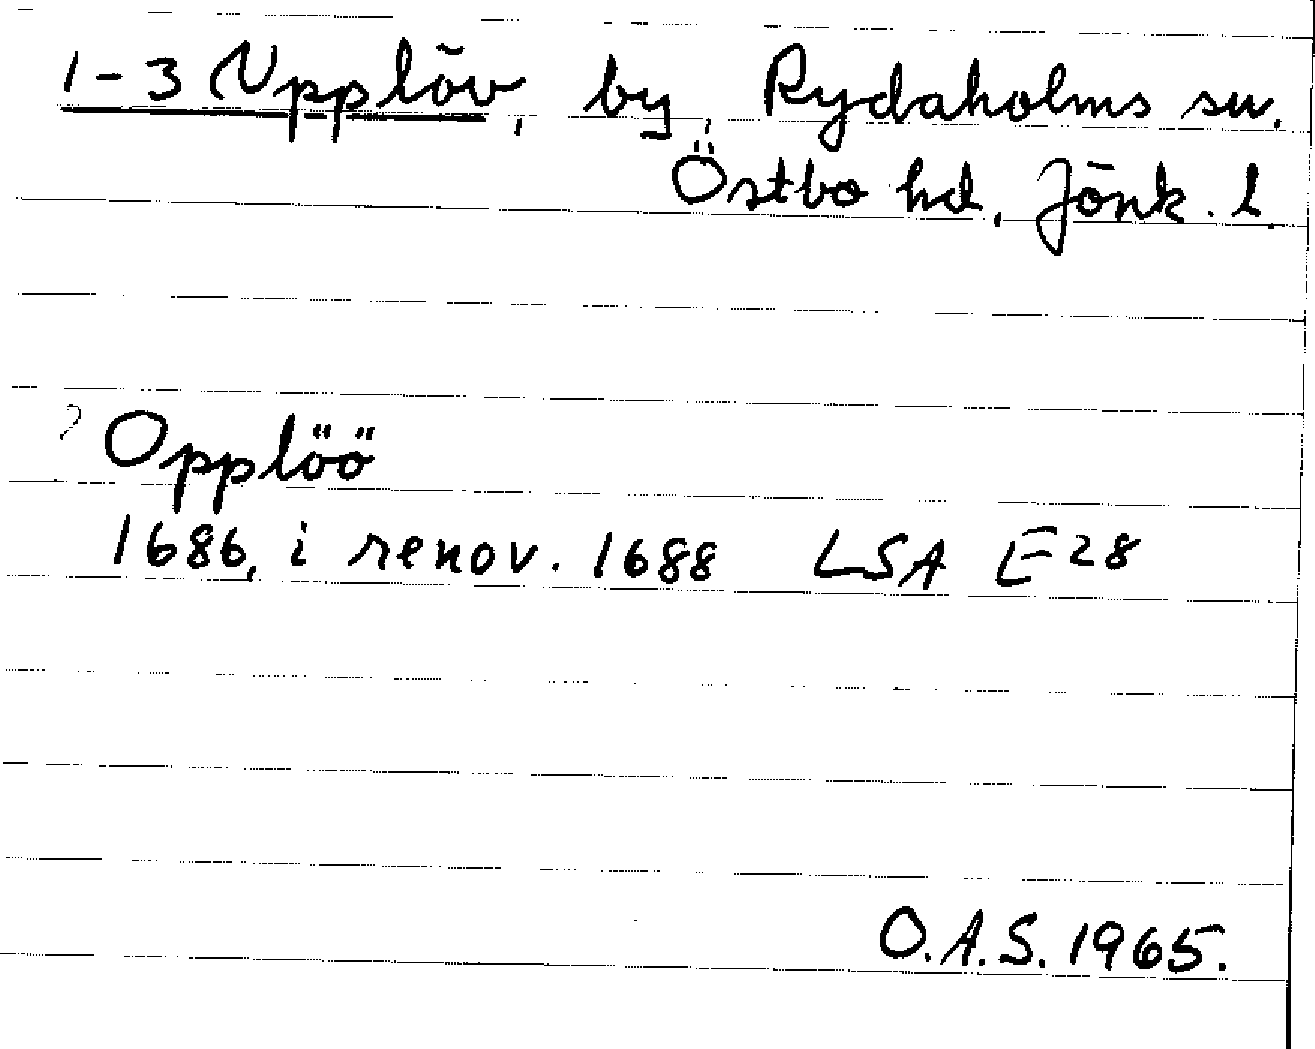 1-3 Upplöv, by, Rydaholms sn.
Östbo hd, Jönk. l.
? Opplöö
1686, i renov. 1688 LSA E28
O.A.S. 1965.